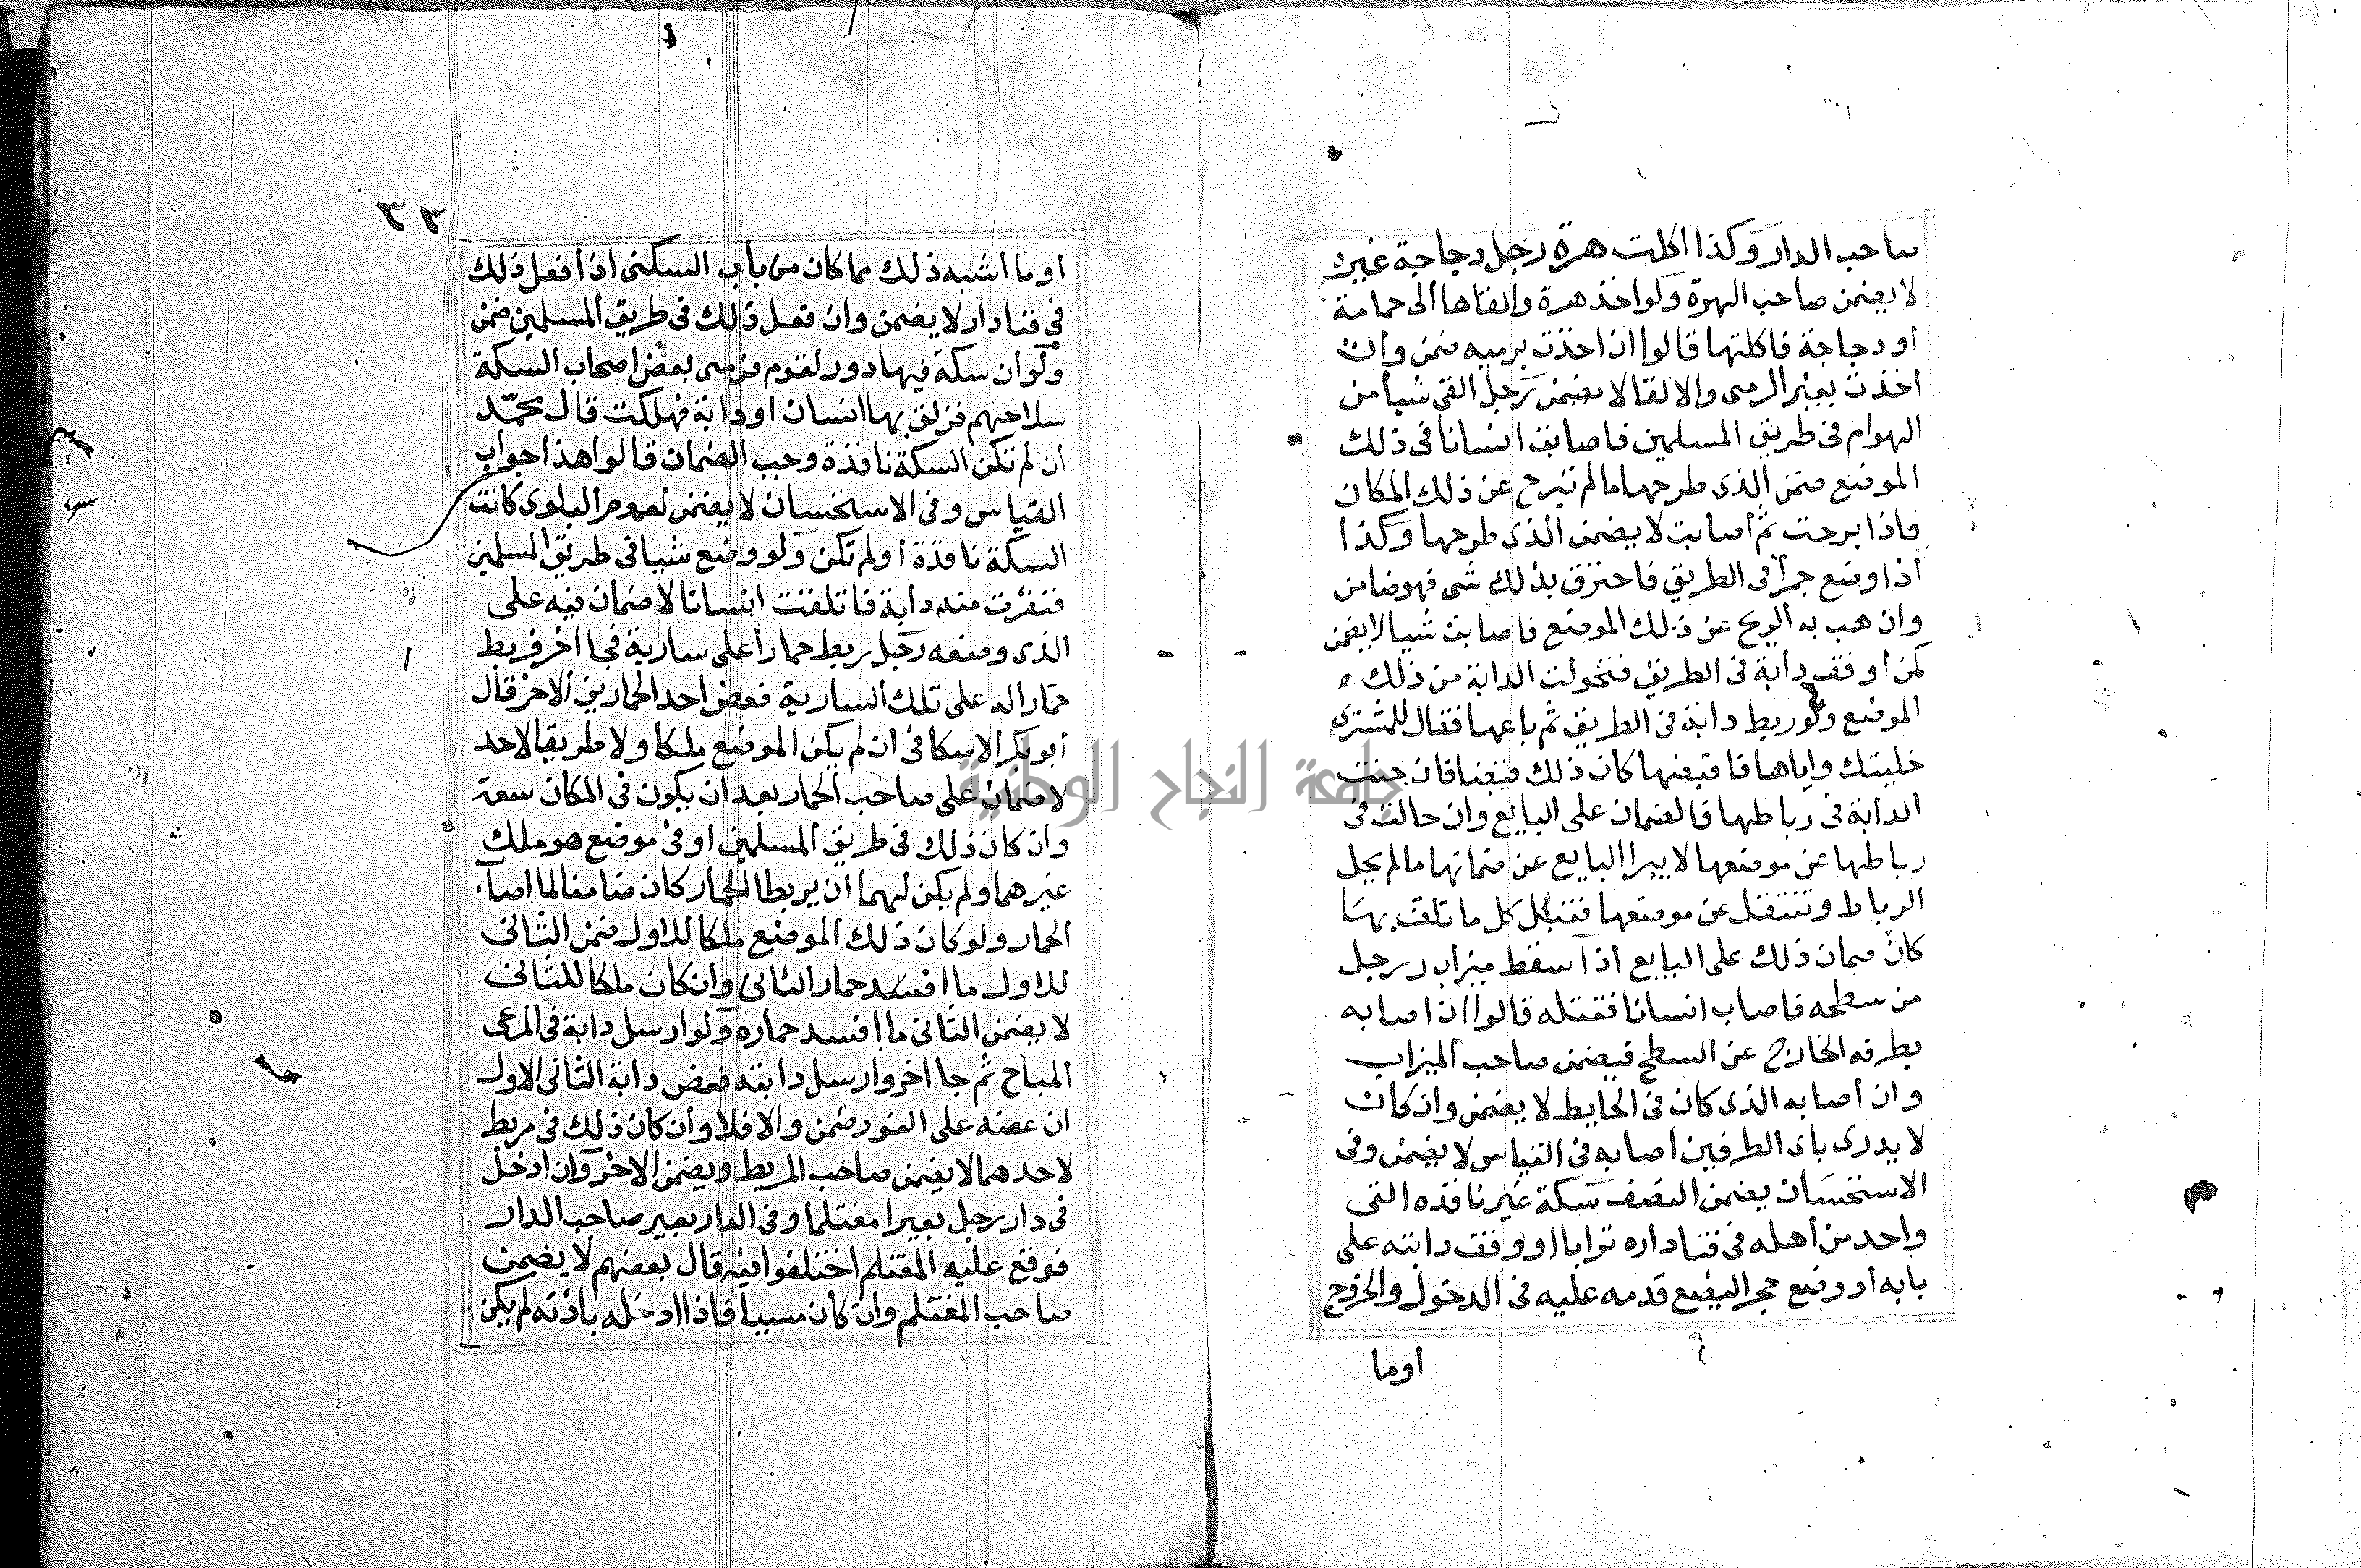 صاحب الدار وكذا اكلت هرة رجل دجاجة غيره
لا يضمن صاحب الهرة ولو اخذ هرة والقاها الى حمامة
او دجاجة فاكلتها قالوا ان اخذت برميه ضمن وان
اخذت بغير الرمى والالقا لا يضمن رجل القى شيأ من
الهوام فى طريق المسلمين فاصابت انسانا فى ذلك
الموضع ضمن الذى طرحها ما لم تبرح عن ذلك المكان
فاذا برحت ثم اصابت لا يضمن الذى طرحها وكذا
اذا وضع جمرا فى الطريق فاحترق بذلك شى فهو ضامن
وان هب به الريح عن ذلك الموضع فاصابت شيا لا يضمن
كمن اوقف دابة فى الطريق فتحولت الدابة من ذلك
الموضع ولو ربط دابة فى الطريق ثم باعها فقال للمشترى
خليتك واياها فاقبضها كان ذلك قبضا فان جنت
الدابة فى رباطها فالضمان على البايع وان حالت فى
رباطها عن موضعها لا يبرا البايع عن ضمانها ما لم يحل
الرباط وتنتقل عن موضعها فقبل كل ما تلف بها
كان ضمان ذلك على البايع اذا سقط ميزاب رجل
من سطحه فاصاب انسانا فقتله قالوا ان اصابه
بطرفه الخارج عن السطح فيضمن صاحب الميزاب
وان اصابه الذى كان فى الحايط لا يضمن وان كان
لا يدرى باى الطرفين اصابه فى القياس لا يضمن وفى
الاستحسان يضمن النصف سكة غير نافذه القى
واحد من اهله فى فنا داره ترابا او وقف دابته على
بابه او وضع حجر اليضع قدمه عليه فى الدخول والخروج
اوما
٢٣
او ما اشبه ذلك مما كان من باب السكنى اذا فعل ذلك
فى فنا دار لا يضمن وان فعل ذلك فى طريق المسلمين ضمن
ولو ان سكة فيها دور لقوم فرمى بعض اصحاب السكة
فزلق بها انسان او دابة فهلكت قال محمد
ان لم تكن السكة نافذة وجب الضمان قالوا هذا جواب
القياس وفى الاستحسان لا يضمن لعموم البلوى كانت
السكة نافذة او لم تكن ولو وضع شيا فى طريق المسلمين
فنفرت منه دابة فاتلفت انسانا لا ضمان فيه على
الذى وضعه رجل ربط حمارا على سارية فجا اخر فربط
حمارا له على تلك السارية فعض احد الحمارين الاخر قال
ابو بكر الاسكافى ان لم يكن الموضع ملكا ولا طريقا لاحد
لا ضمان على صاحب الحمار بعد ان يكون فى المكان سعة
وان كان ذلك فى طريق المسلمين او فى موضع هو ملك
غيرهما ولم يكن لهما ان يربطا الحمار كان ضامنا لما اصاب
الحمار ولو كان ذلك الموضع ملكا للاول ضمن الثانى
للاول ما افسد حمار الثانى وان كان ملكا للثانى
لا يضمن الثانى ما افسد حماره ولو ارسل دابة فى المرعى
المباح ثم جا اخر وارسل دابته فعض دابة الثانى الاول
ان عضه على الفور ضمن والا فلا وان كان ذلك فى مربط
لاحدهما لا يضمن صاحب المربط ويضمن الاخر وان ادخل
فى دار رجل بعيرا مغتلما وفى الدار بعير صاحب الدار
فوقع عليه المغتلم اختلفوا فيه قال بعضهم لا يضمن
صاحب المغتلم وان كان مسيبا فاذا ادخله باذنه لم يكن
جامعة النجاح الوطنية